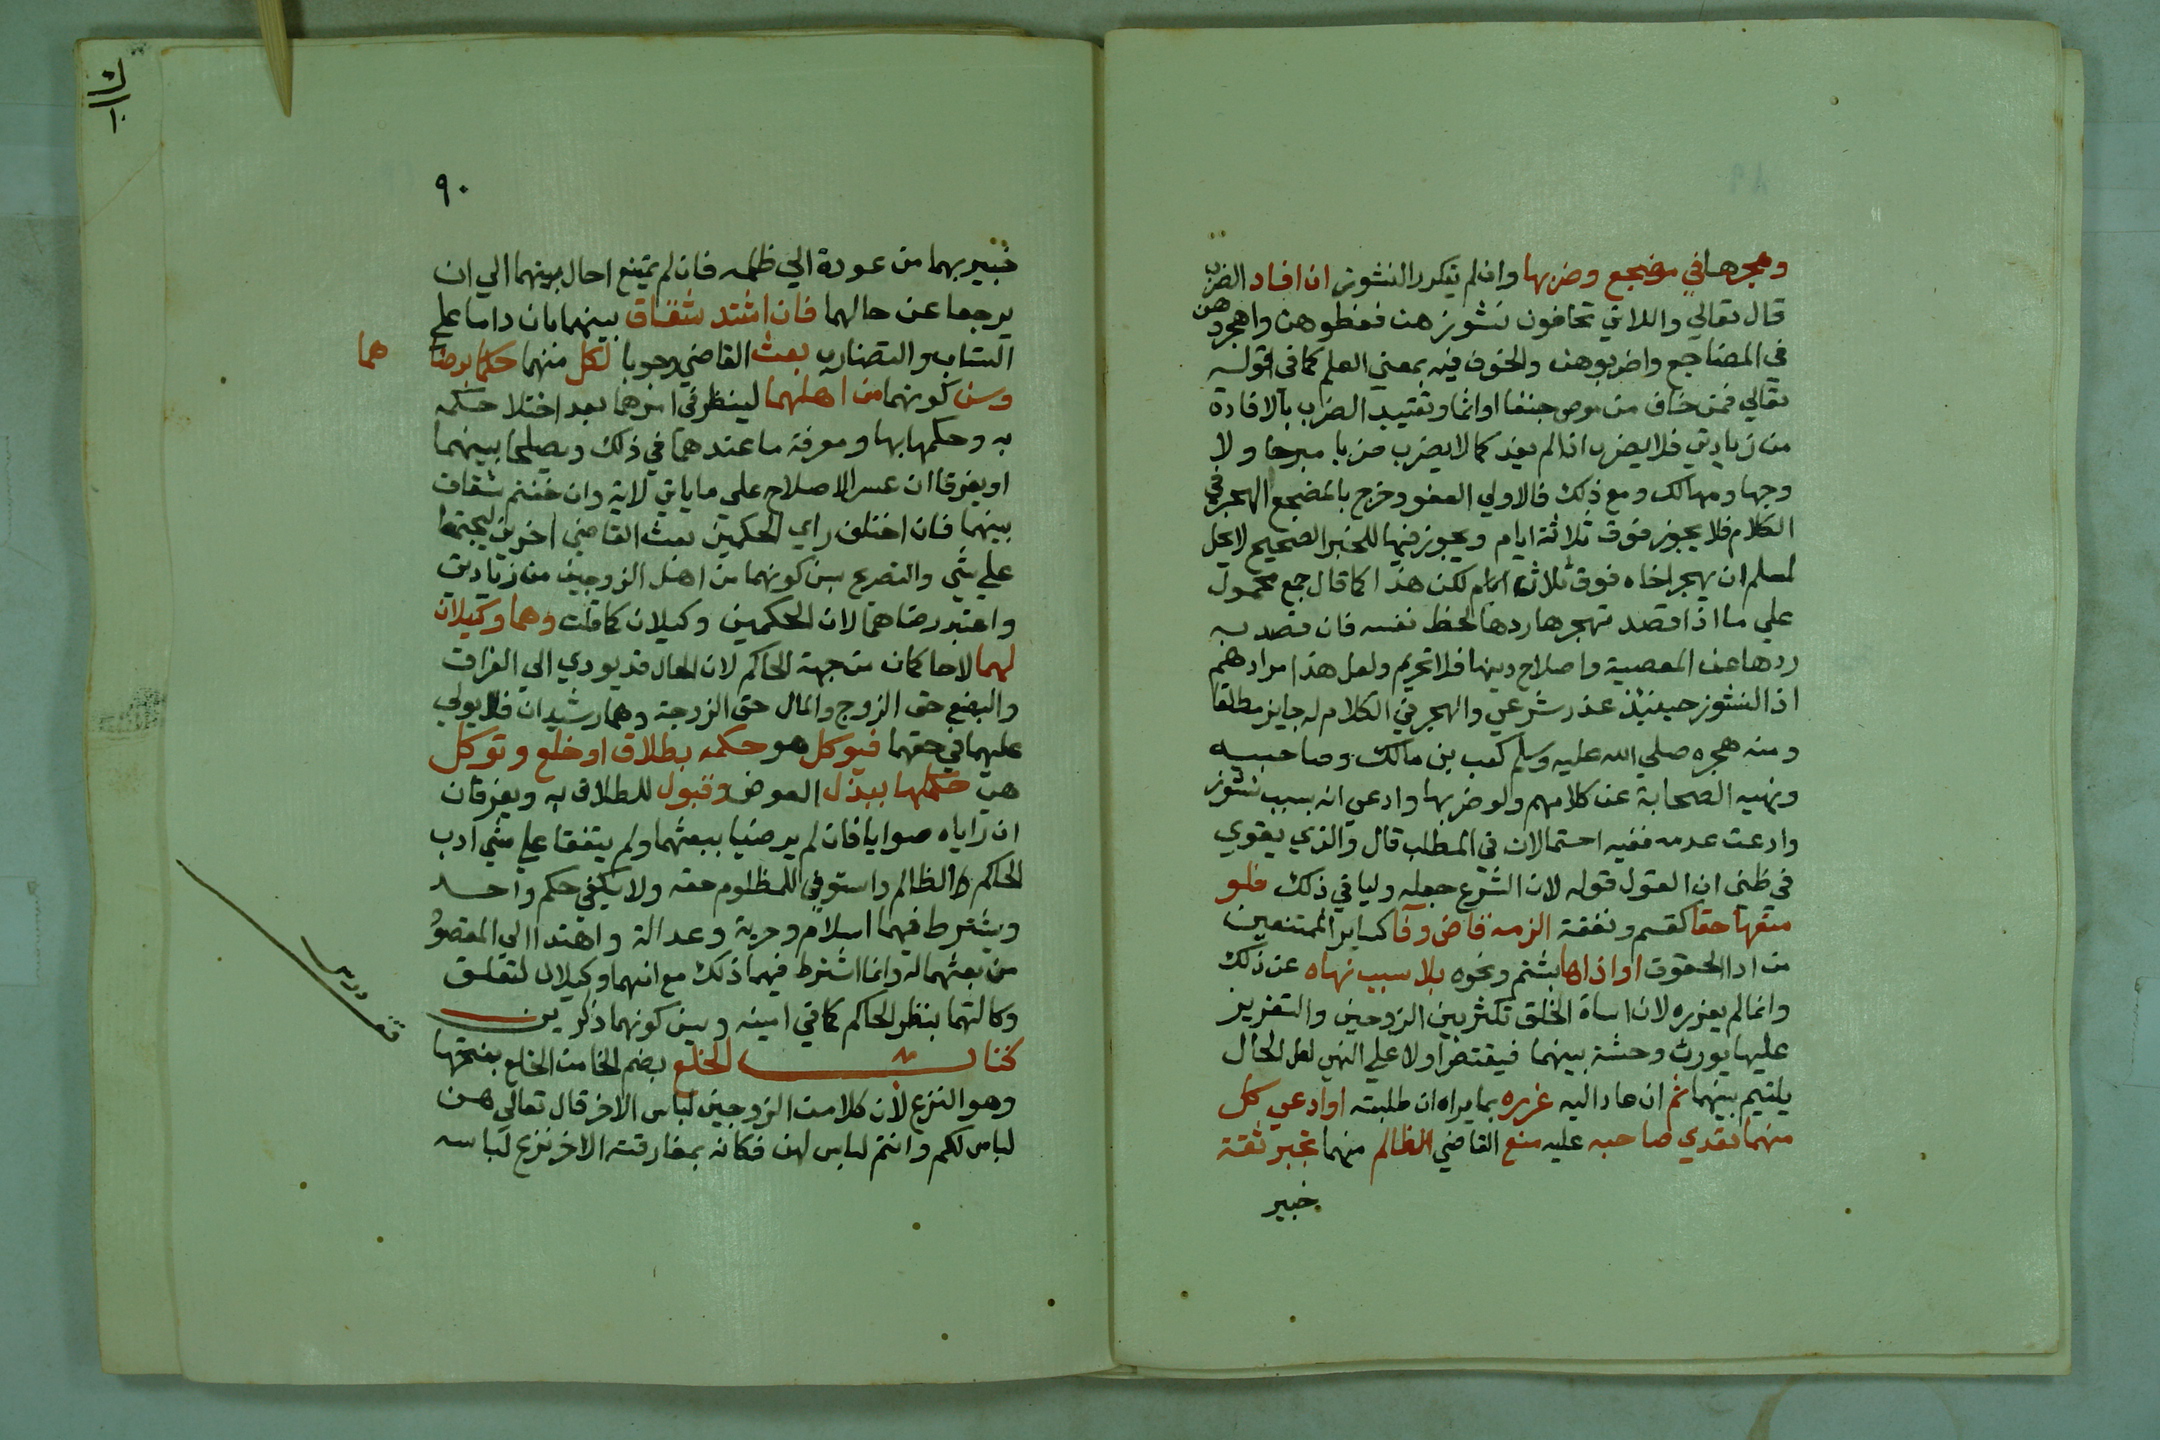 وهجرها في مضجع وضربها وان لم يتكرر النشوز ان افاد الضرب
قال تعالي واللاتي تخافون نشوزهن فعظوهن واهجروهن
في المضاجع واضربوهن والخوف فيه بمعني العلم كما في قوله
تعالي فمن خاف من موص جنفا او اثما وتقييد الضرب بالافادة
من زيادتي فلا يضرب اذا لم يفد كما لا يضرب ضربا مبرحا ولا
وجها ومهالك ومع ذلك فالاولي العفو وخرج بالمضجع الهجر في
الكلام فلا يجوز فوق ثلاثة ايام ويجوز فيها للخبر الصحيح لا يحل
لمسلم ان يهجر اخاه فوق ثلاثة ايام لكن هذا كما قال جمع محمول
علي ما اذا قصد بهجرها ردها لحظ نفسه فان قصد به
ردها عن المعصية واصلاح دينها فلا تحريم ولعل هذا مرادهم
اذ النشوز حينيذ عذر شرعي والهجر في الكلام له جايز مطلقا
ومنه هجره صلي الله عليه وسلم كعب بن مالك وصاحبيه
ونهيه الصحابة عن كلامهم ولو ضربها وادعي انه بسبب نشوز
وادعت عدمه ففيه احتمالان في المطلب قال والذي يقوي
في ظني ان القول قوله لان الشرع جعله وليا في ذلك فلو
منعها حقا كقسم ونفقة الزمه قاض وفا كساير الممتنعين
من ادا الحقوق او اذاها بشتم ونحوه بلا سبب نهاه عن ذلك
وانما لم يعزره لان اساة الخلق تكثر بين الزوجين والتعزير
عليها يورث وحشة بينهما فيقتصر اولا علي النهي لعل الحال
يلتيم بينهما ثم ان عاد اليه عزره بما يراه ان طلبته او ادعي كل
منهما تعدي صاحبه عليه منع القاضي الظالم منهما بخبر ثقة
خبير
٩٠
خبير بهما من عودة الي ظلمه فان لم يمتنع احال بينهما الي ان
يرجعا عن حالهما فان اشتد شقاق بينهما بان داما علي
التساب والتضارب بعث القاضي وجوبا لكل منهما حكما برضا
هما
وسن كونهما من اهلهما لينظر في امرهما بعد اختلا حكمه
به وحكمها بها ومعرفة ما عندهما في ذلك ويصلحا بينهما
او يفرقا ان عسر الاصلاح علي ما ياتي لاية وان خفتم شقاق
بينهما فان اختلف راي الحكمين بعث القاضي اخرين ليجتمعا
علي شي والتصريح بسن كونهما من اهل الزوجين من زيادتي
واعتبر رضاهما لان الحكمين وكيلان كما قلت وهما وكيلان
لهما لا حاكمان من جهة الحاكم لان الحال قد يودي الي الفراق
والبضع حق الزوج والمال حق الزوجة وهما رشيدان فلا يولي
عليهما في حقهما فيوكل هو حكمه بطلاق او خلع وتوكل
هي حكمها ببذل العوض وقبول للطلاق به ويفرقان
ان راياه صوابا فان لم يرضيا ببعثهما ولم يتفقا علي شي ادب
الحاكم الظالم واستوفي للمظلوم حقه ولا يكفي حكم واحد
ويشترط فيهما اسلام وحرية وعدالة واهتدا الي المقصود
من بعثهما له وانما اشترط فيهما ذلك مع انهما وكيلان لتعلق
وكالتهما بنظر الحاكم كما في امينه ويسن كونهما ذكرين
كتاب الخلع بضم الخا من الخلع بفتحها
وهو النزع لان كلا من الزوجين لباس الاخر قال تعالي هن
لباس لكم وانتم لباس لهن فكانه بمفارقته الاخر نزع لباسه